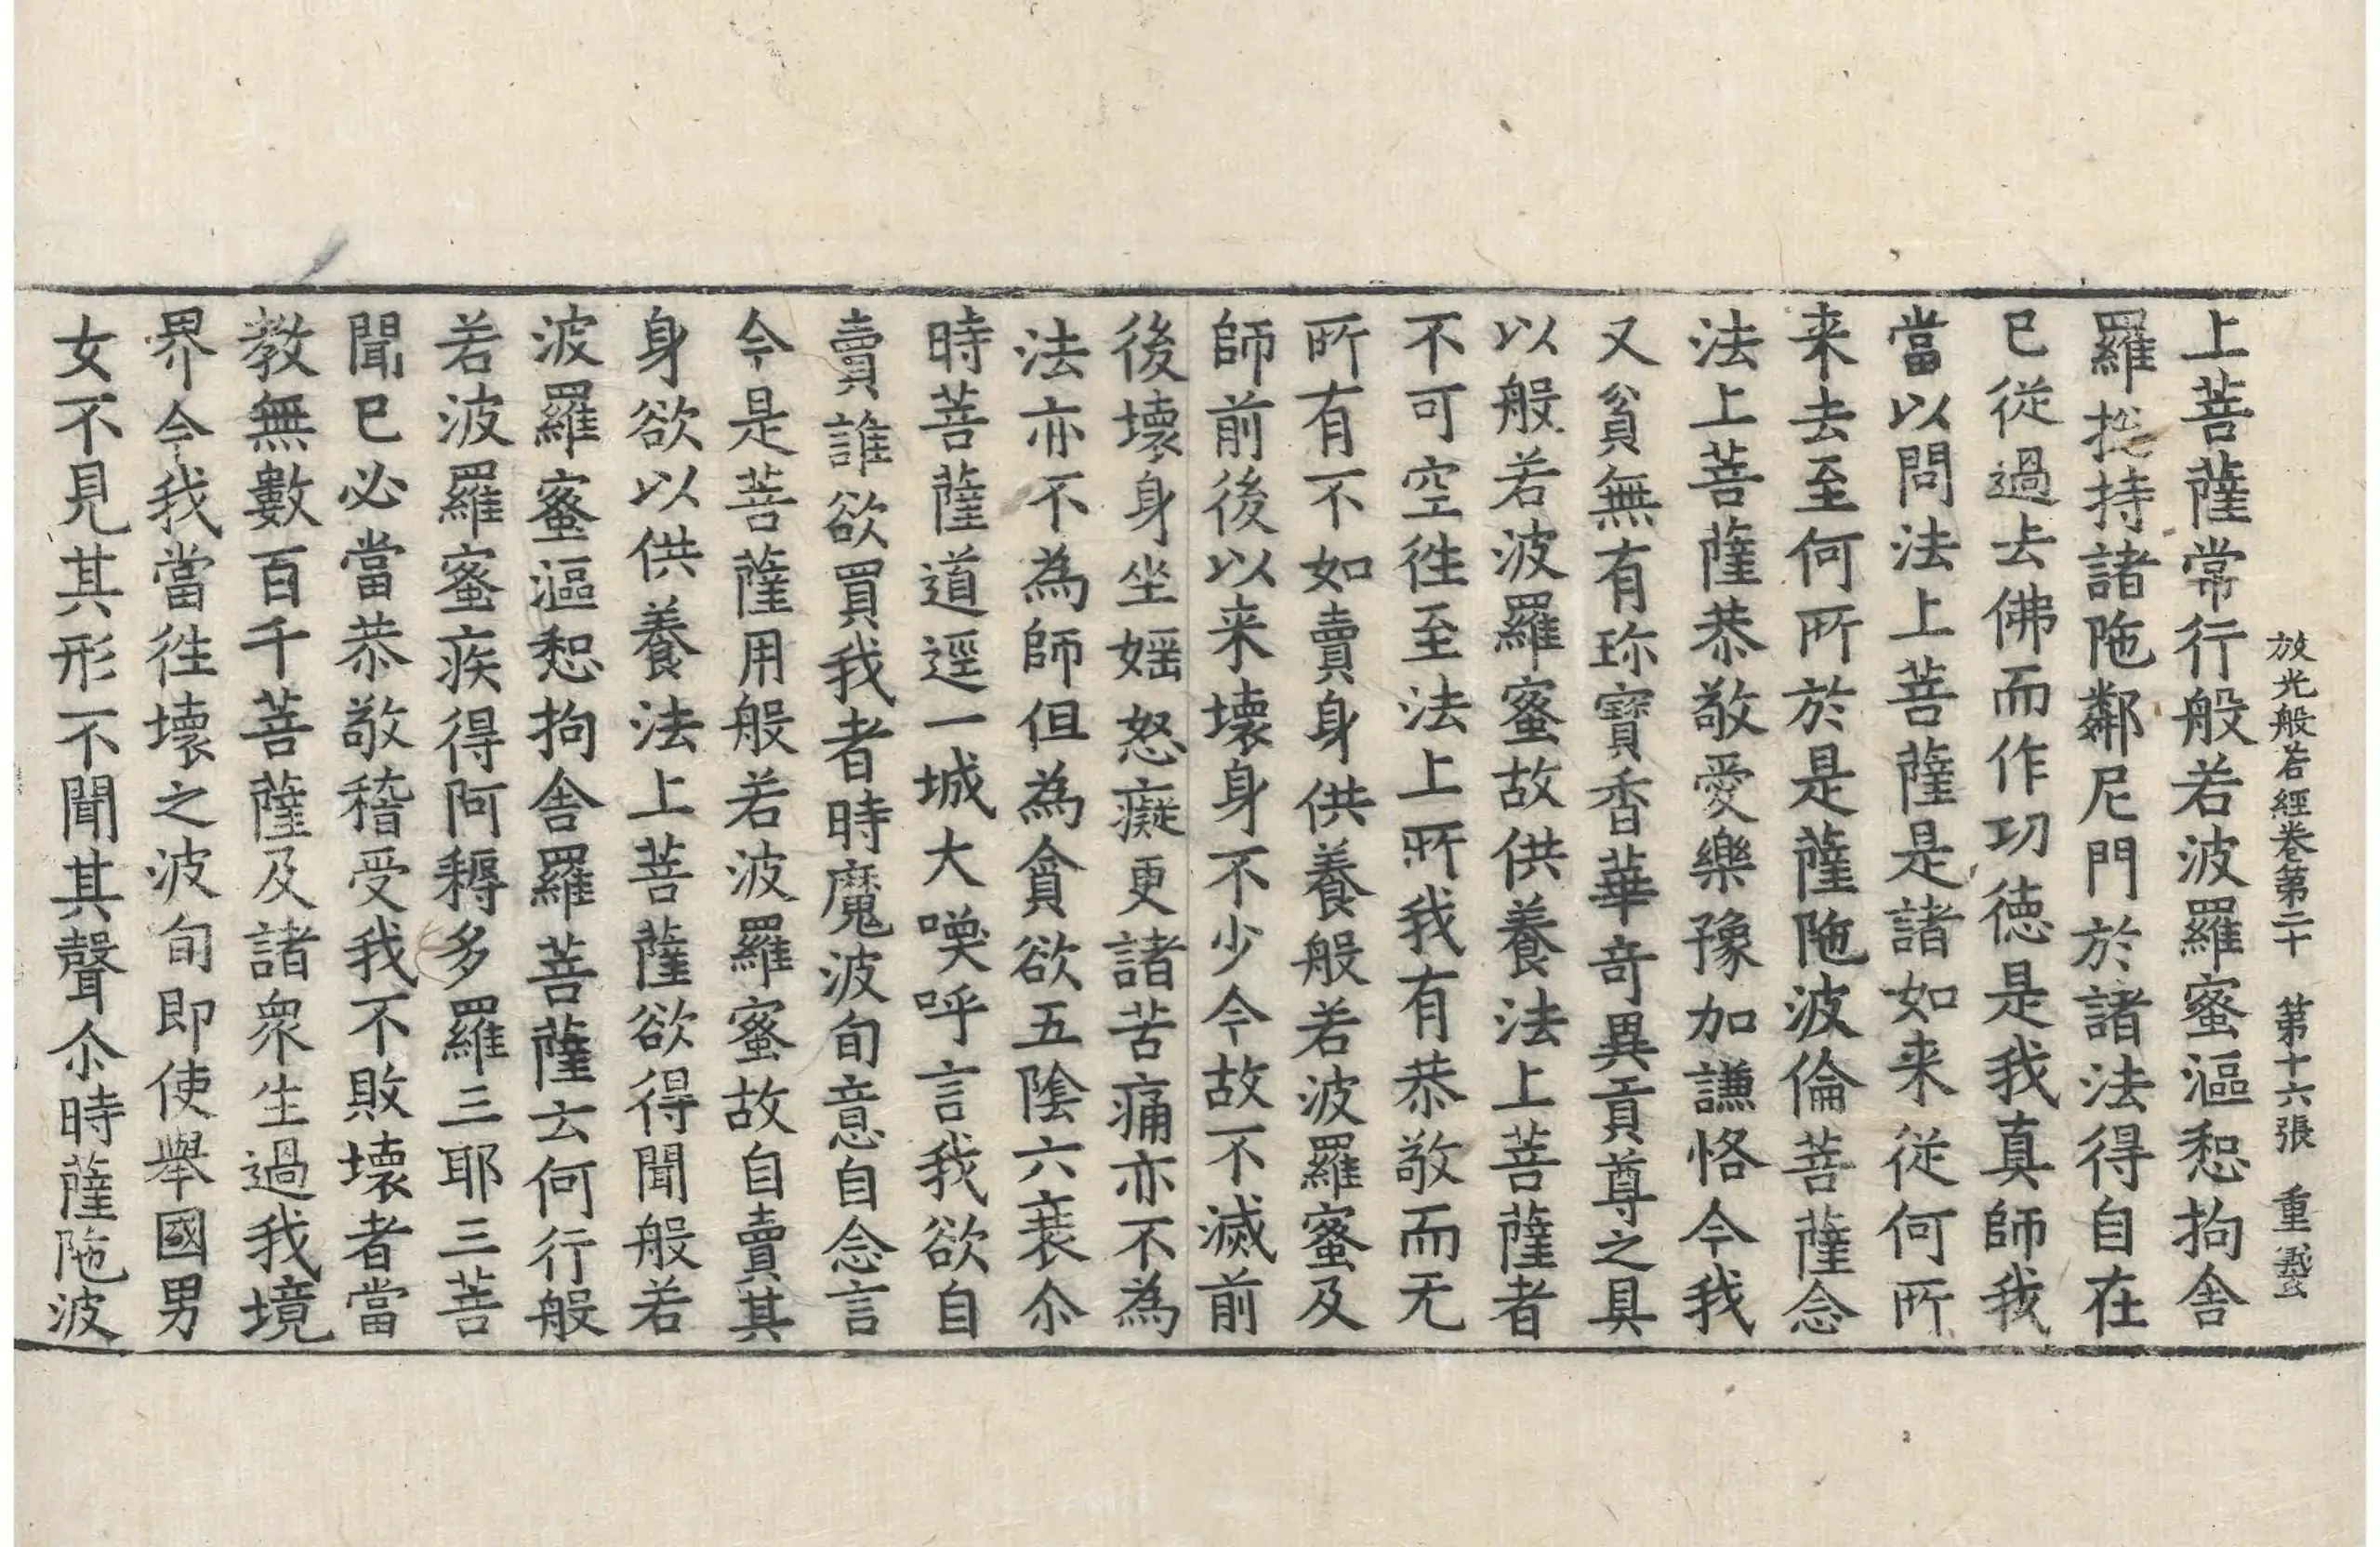 放光般若經卷第二十 第十六張 重
上菩薩常行般若波羅蜜漚惒拘舍
羅捴持諸陁鄰尼門於諸法得自在
已從過去佛而作功德是我真師我
當以問法上菩薩是諸如来從何所
来去至何所於是薩陁波倫菩薩念
法上菩薩恭敬愛樂豫加謙恪今我
又貧無有珎寶香華奇異貢尊之具
以般若波羅蜜故供養法上菩薩者
不可空徃至法上所我有恭敬而无
所有不如賣身供養般若波羅蜜及
師前後以来壞身不少今故不滅前
後壞身坐婬怒癡更諸苦痛亦不為
法亦不為師但為貪欲五陰六衰尒
時菩薩道逕一城大喚呼言我欲自
賣誰欲買我者時魔波旬意自念言
今是菩薩用般若波羅蜜故自賣其
身欲以供養法上菩薩欲得聞般若
波羅蜜漚惒拘舍羅菩薩云何行般
若波羅蜜疾得阿耨多羅三耶三菩
聞已必當恭敬稽受我不敗壞者當
教無數百千菩薩及諸衆生過我境
界今我當徃壞之波旬即使舉國男
女不見其形不聞其聲尒時薩陁波